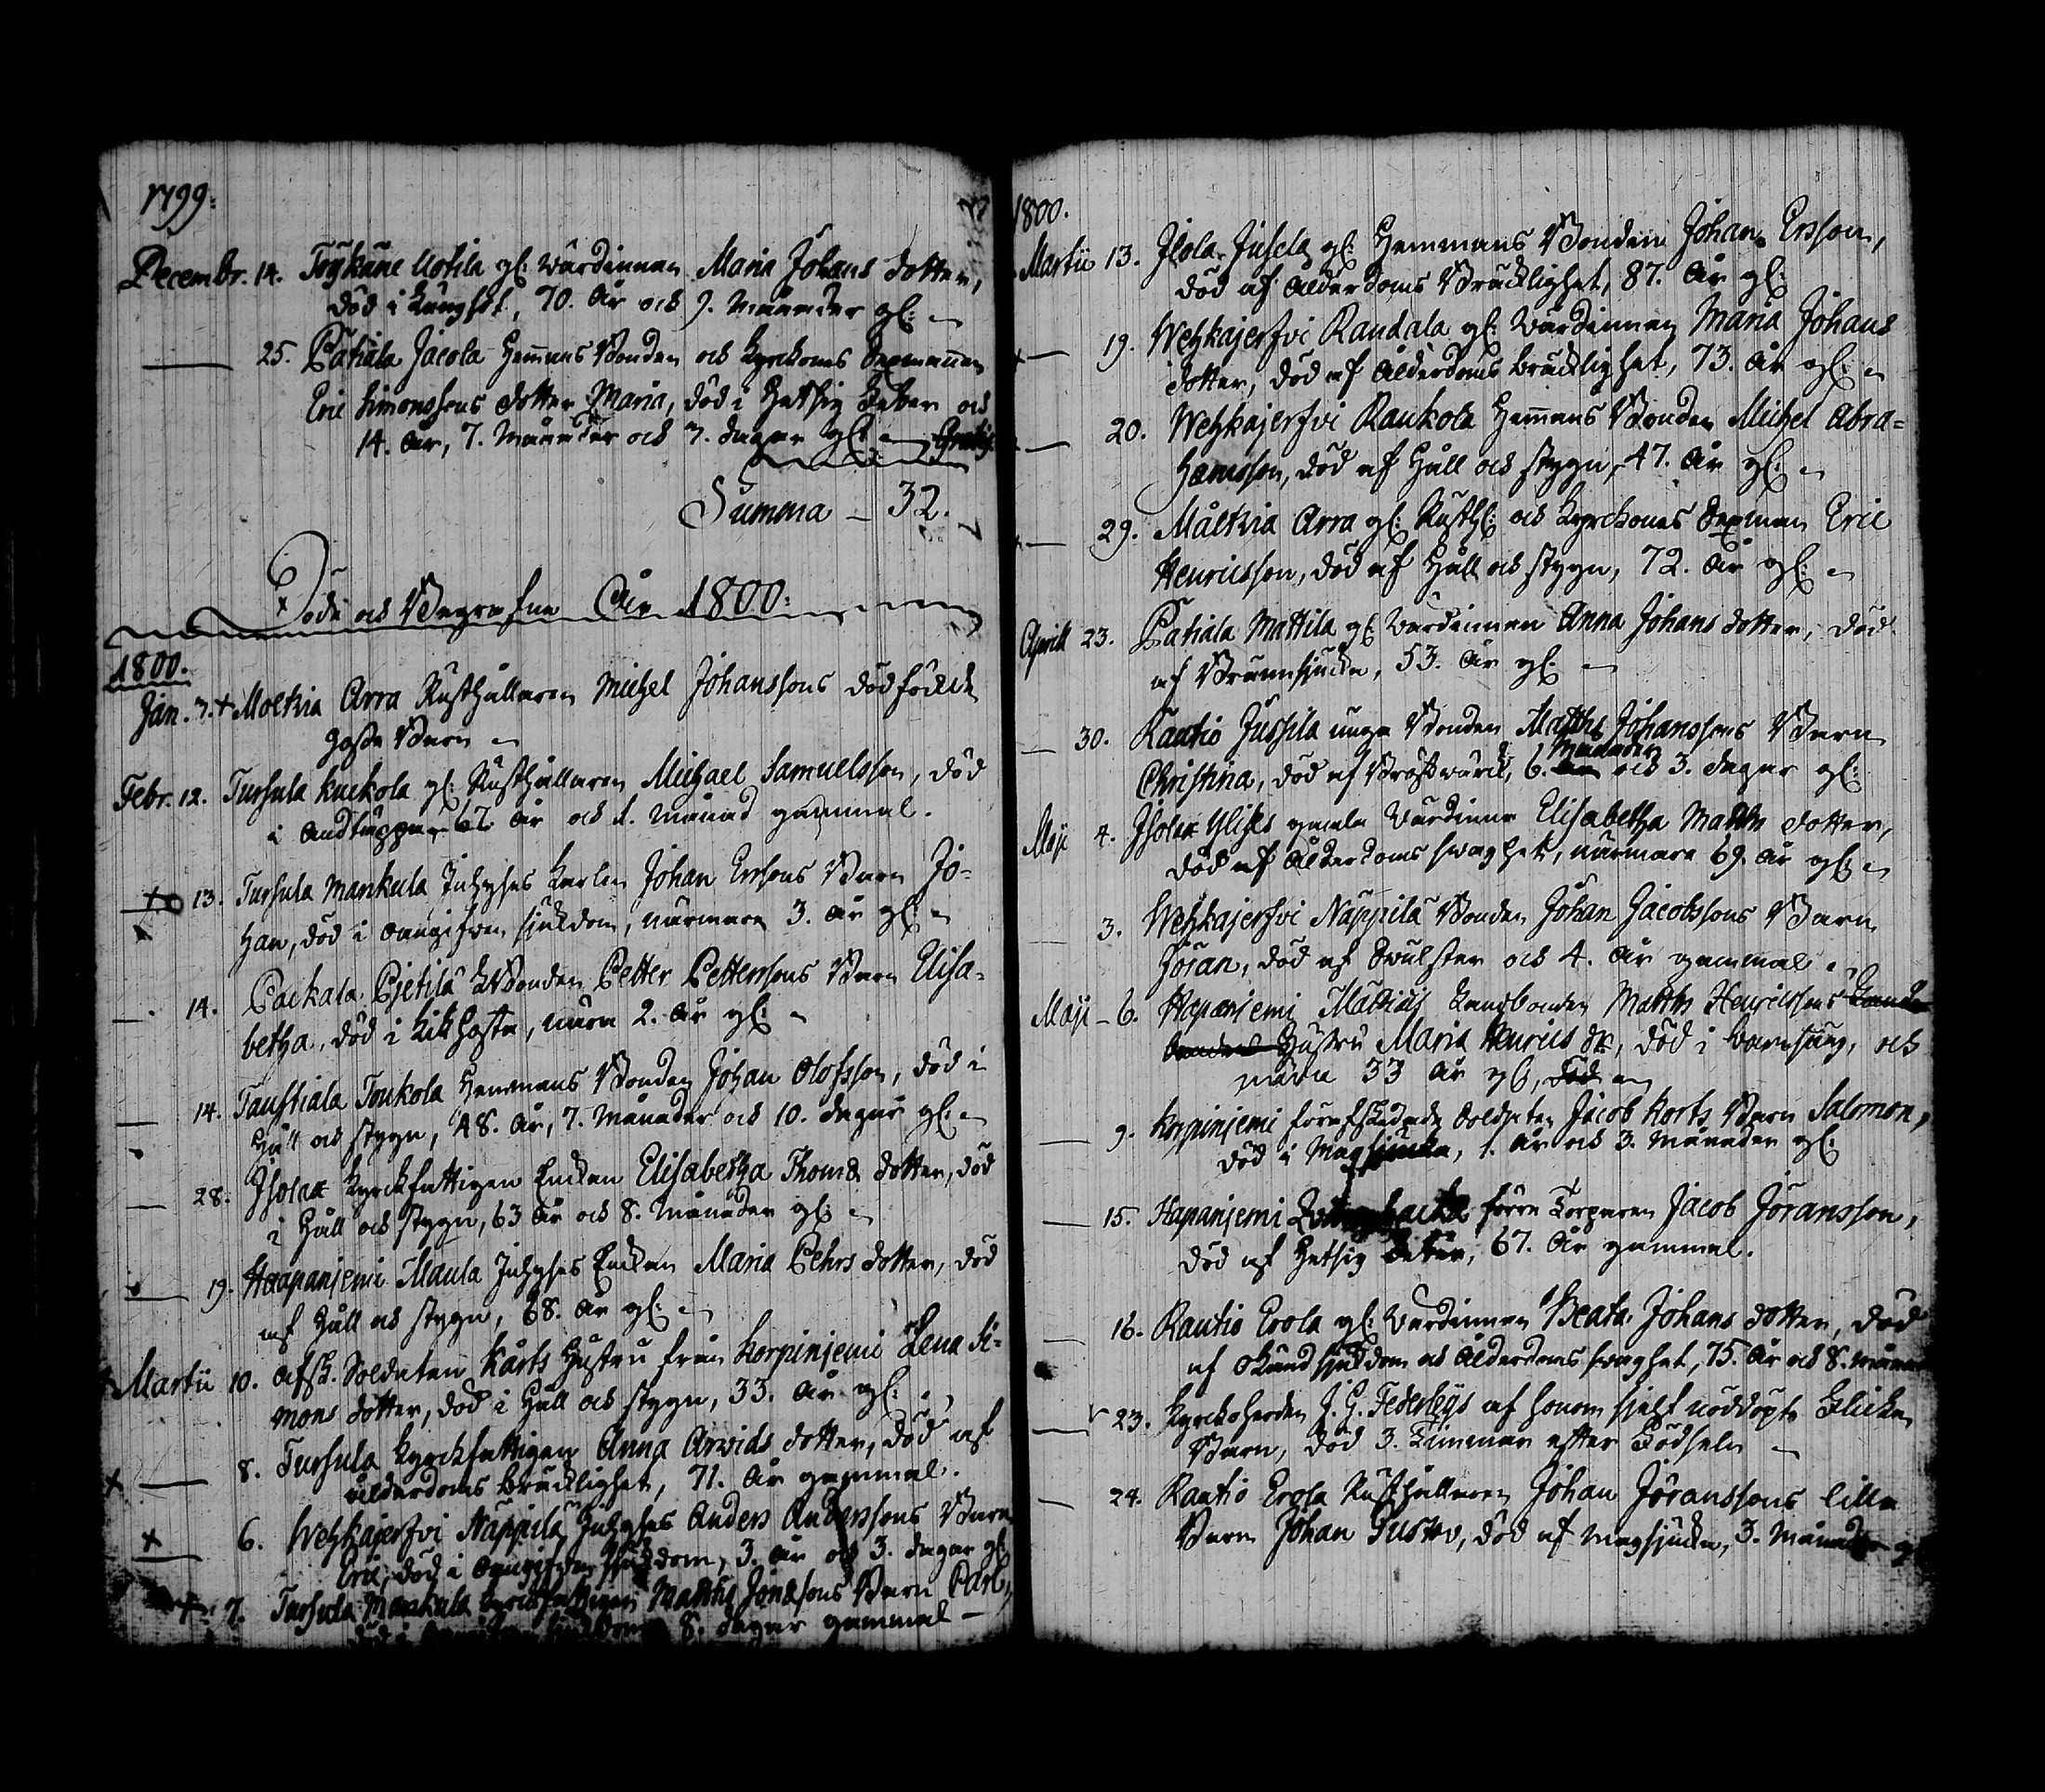 1799.
Decembr. 14. Toykäne Uotila gl: Wärdinnan Maria Johans dotter,
död i Lungsot, 70. år och 9. Månader gl:
25. Pätiälä Jacola Hemmans Bonden och Kyrckones Sexmannen
Eric Simonssons dotter Maria, död i Hetsig Feber och
14. år, 7. Månader och 7. dagar gl:
Summa _ 32.
Döde och Begrafne Åhr 1800:
1800.
Jan. 7. + Moltzia Arra Rusthållaren Michel Johanssons dödfödde
gosse Barn
Febr. 12. Tursula Kuckola gl: Rusthållaren Michael Samuelsson, död
i Andtäppa 67 år och 1. månad gammal.
13. Tursula Mankula Inhyses Karlen Johan Erssons Barn Jo-
han, död i oangifven sjukdom, närmare 3. år gl:
14. Packala Pjetilä Bonden Petter Petterssons Barn Elisa-
betha, död i Kikhosta, nära 2. år gl:
14. Taustiala Toukola Hemmans Bonden Johan Olofsson, död i
Håll och stygn, 48. år, 7. Månader och 10. dagar gl:
28. Kyrckfattigen Enckan Elisabetha Thomæ dotter, död
i Håll och stygn, 63 år och 8. Månader gl:
19. Haapanjemi Maula Inhyses Enckan Maria Pehrs dotter, död
af Håll och stygn, 68. år gl:
Martii 10. Afsk. Soldaten Kårts Hustru från Korpinjemi Lena Si-
mons dotter, död i Håll och stygn, 33. år gl:
8. Tursula Kyrckfattigan Anna Arvids dotter, död af
ålderdoms bräcklighet, 71. år gammal.
6. Wehkajerfvi Näppilä Inhyses Anders Anderssons Barn
Eric, död i oangifven sjukdom, 3. år och 3. dagar gl:
7. Tursula Mankula Kyrckfattigen Matths Jonassons Barn Carl,
8. dagar gammal
1800.
Martii 13. gl: Hemmans Bonden Johan Ersson,
död af ålderdoms Bräcklighet, 87. år gl:
19. Wehkajerfvi Randala gl: Wärdinnan Maria Johans
dotter, död af ålderdoms bräcklighet, 73. år gl:
20. Wehkajerfvi Raukola Hemmans Bonden Michel Abra-
hamsson, död af Håll och stygn, 47. år gl:
29. Mältzia Arra gl: Rusth: och Kyrckones Sexman Eric
Henricsson, död af Håll och stygn, 72. år gl:
Aprill 23. Pätiälä Mattila gl: Wärdinnan Anna Johans dotter, död
af Brännsjucka, 53. år gl:
30. Rautio Jussila unga Bonden Matths Johanssons Barn
Christina, död af Bröstwärck, 6. Månader och 3. dagar gl:
Maji 4. gamla Wärdinna Elisabetha Matths dotter,
död af Ålderdoms swaghet, närmare 69. år gl:
3. Wehkajerfvi Näppilä Bonden Johan Jacobssons Barn
Jöran, död af Swulster och 4. år gammal
Maji _ 6. Hapanjemi Landbonden Matths Henricssons
Hustru Maria Henrics dr, död i barnsäng, och
nära 33 år gl,
9. Korpinjemi förafskedade Soldaten Jacob Korts Barn Salomon,
död i Magsjucka, 1. år och 3. Månader gl:
15. Hapanjemi förre Torparen Jacob Jöransson,
död af Hetsig Feber, 67. år gammal.
16. Rautio Erola gl: Wärdinnan Beata Johans dotter, död
af okänd sjukdom och Ålderdoms swaghet, 75. år och 8. månar
23. Kyrckoherden J. G. Federleys af honom sjelf nöddöpte Flicke
Barn, död 3. Timmar efter Födseln
24. Rautio Erola Rusthållaren Johan Jöranssons lilla
Barn Johan Gustav, död af magsjucka, 3. Månader gl